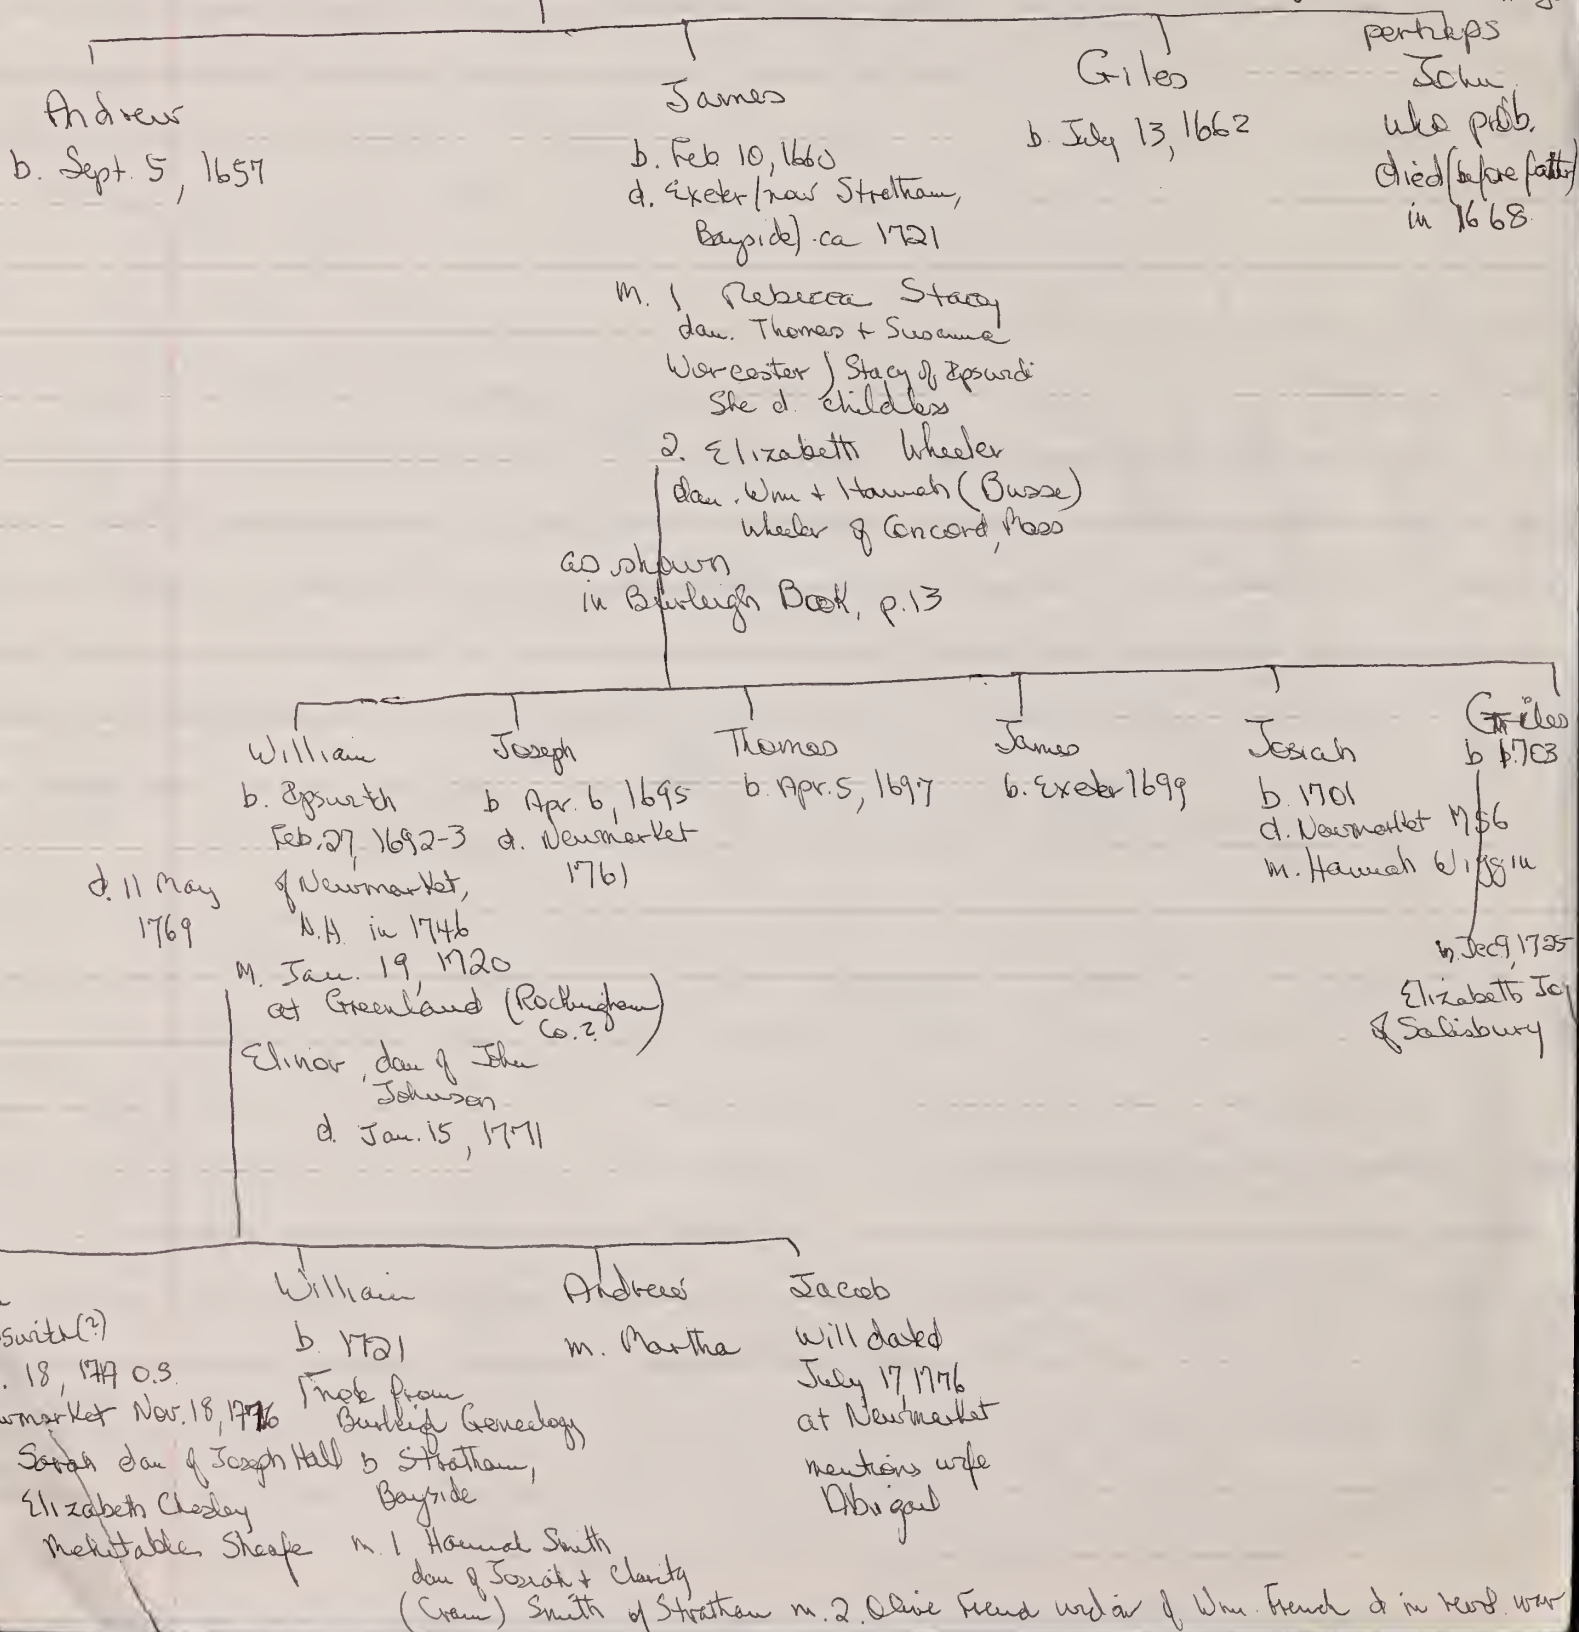 Andrew
b. Sept. 5, 1657
James
b. Feb 10, 1660
d. Exeter (now Stratham,
Bayside) ca 1721
m. 1 Rebecca Stacy
dau. Thomas + Susanna
Worcester) Stacy of Ipswich
She d. childless
2. Elizabeth Wheeler
dau. Wm + Hannah (Busse)
Wheeler of Concord, Mass
as shown
in Burleigh Book, p.13
Giles
b. July 13, 1662
perhaps
John
who prob.
died (before father)
in 1668
William
b. Ipswich
Feb. 27, 1692-3
of Newmarket,
N.H. in 1746
d. 11 May
1769
m. Jan. 19, 1720
at Greenland (Rockingham
Co.?)
Elinor, dau of John
Johnson
d. Jan. 15, 1771
Joseph
b Apr. 6, 1695
d. Newmarket
1761
Thomas
b. Apr. 5, 1697
James
b. Exeter 1699
Josiah
b. 1701
d. Newmarket 1756
m. Hannah Wiggin
Giles
b 1703
m. Dec 9, 1725
Elizabeth Joy
of Salisbury
swith(?)
. 18, 1717 O.S.
wmarket Nov. 18, 1776
Sarah dau of Joseph Hall
Elizabeth Chesley
Mehitable Sheafe
William
b. 1721
note from
Burleigh Genealogy
b Stratham,
Bayside
m. 1 Hannah Smith
dau of Josiah + Clarity
(Cram) Smith of Stratham m. 2. Olive French widow of Wm. French d in revol. war
Andrew
m. Martha
Jacob
Will dated
July 17, 1776
at Newmarket
mentions wife
Abigail